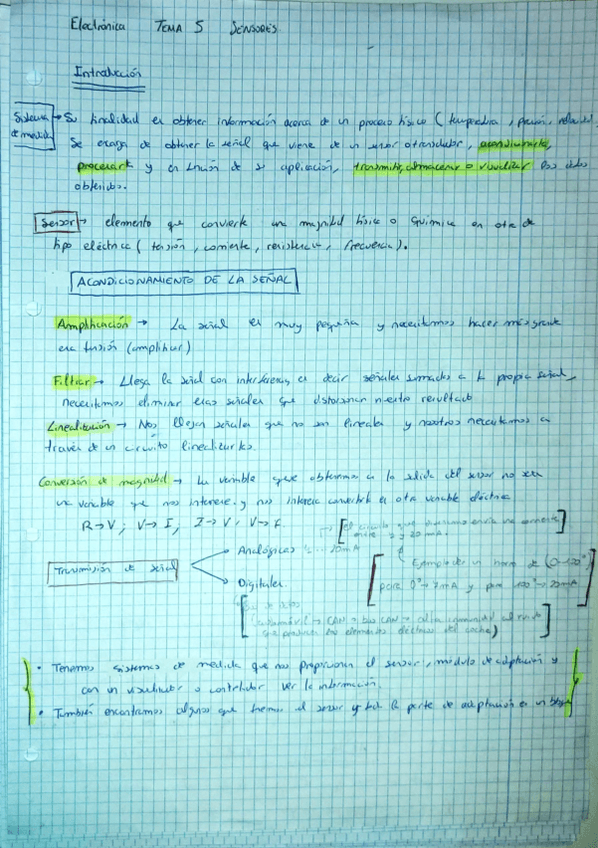 Electrónica TEMA 5 SENSORES
Introducción
Sistema de medida → Su finalidad es obtener información acerca de un proceso físico (temperatura, presión,
Se encarga de obtener la señal que viene de un sensor o transductor, acondicionarla,
procesarla y en función de su aplicación, transmitir, almacenar o visualizar los datos
obtenidos.
Sensor → elemento que convierte una magnitud física o química en otra de
tipo eléctrica (tensión, corriente, resistencia, frecuencia).
ACONDICIONAMIENTO DE LA SEÑAL
Amplificación → La señal es muy pequeña y necesitamos hacer más grande
esa tensión (amplificar)
Filtrar → Llega la señal con interferencias, es decir señales sumadas a la propia señal,
necesitamos eliminar esas señales que distorsionan nuestro resultado
Linealización → Nos llegan señales que no son lineales y nosotros necesitamos a
través de un circuito linealizarlas.
Conversión de magnitud → La variable que obtenemos a la salida del sensor no sea
una variable que nos interese y nos interesa convertirla en otra variable eléctrica
R→V; V→I, I→V, V→f.
[el circuito que
entre y 20mA.]
Transmisión de señal
Analógicas 20mA
[Ejemplo de un horno de (0-100°)
para 0° → mA y para 100° → 20mA]
Digitales.
[automóvil → CAN → bus CAN → alta inmunidad al ruido
que producen los elementos eléctricos del coche)]
• Tenemos sistemas de medida que nos proporcionan el sensor, módulo de adaptación y
con un visualizador o controlador ver la información.
• También encontramos algunos que tienen el sensor y toda la parte de adaptación en un bloque